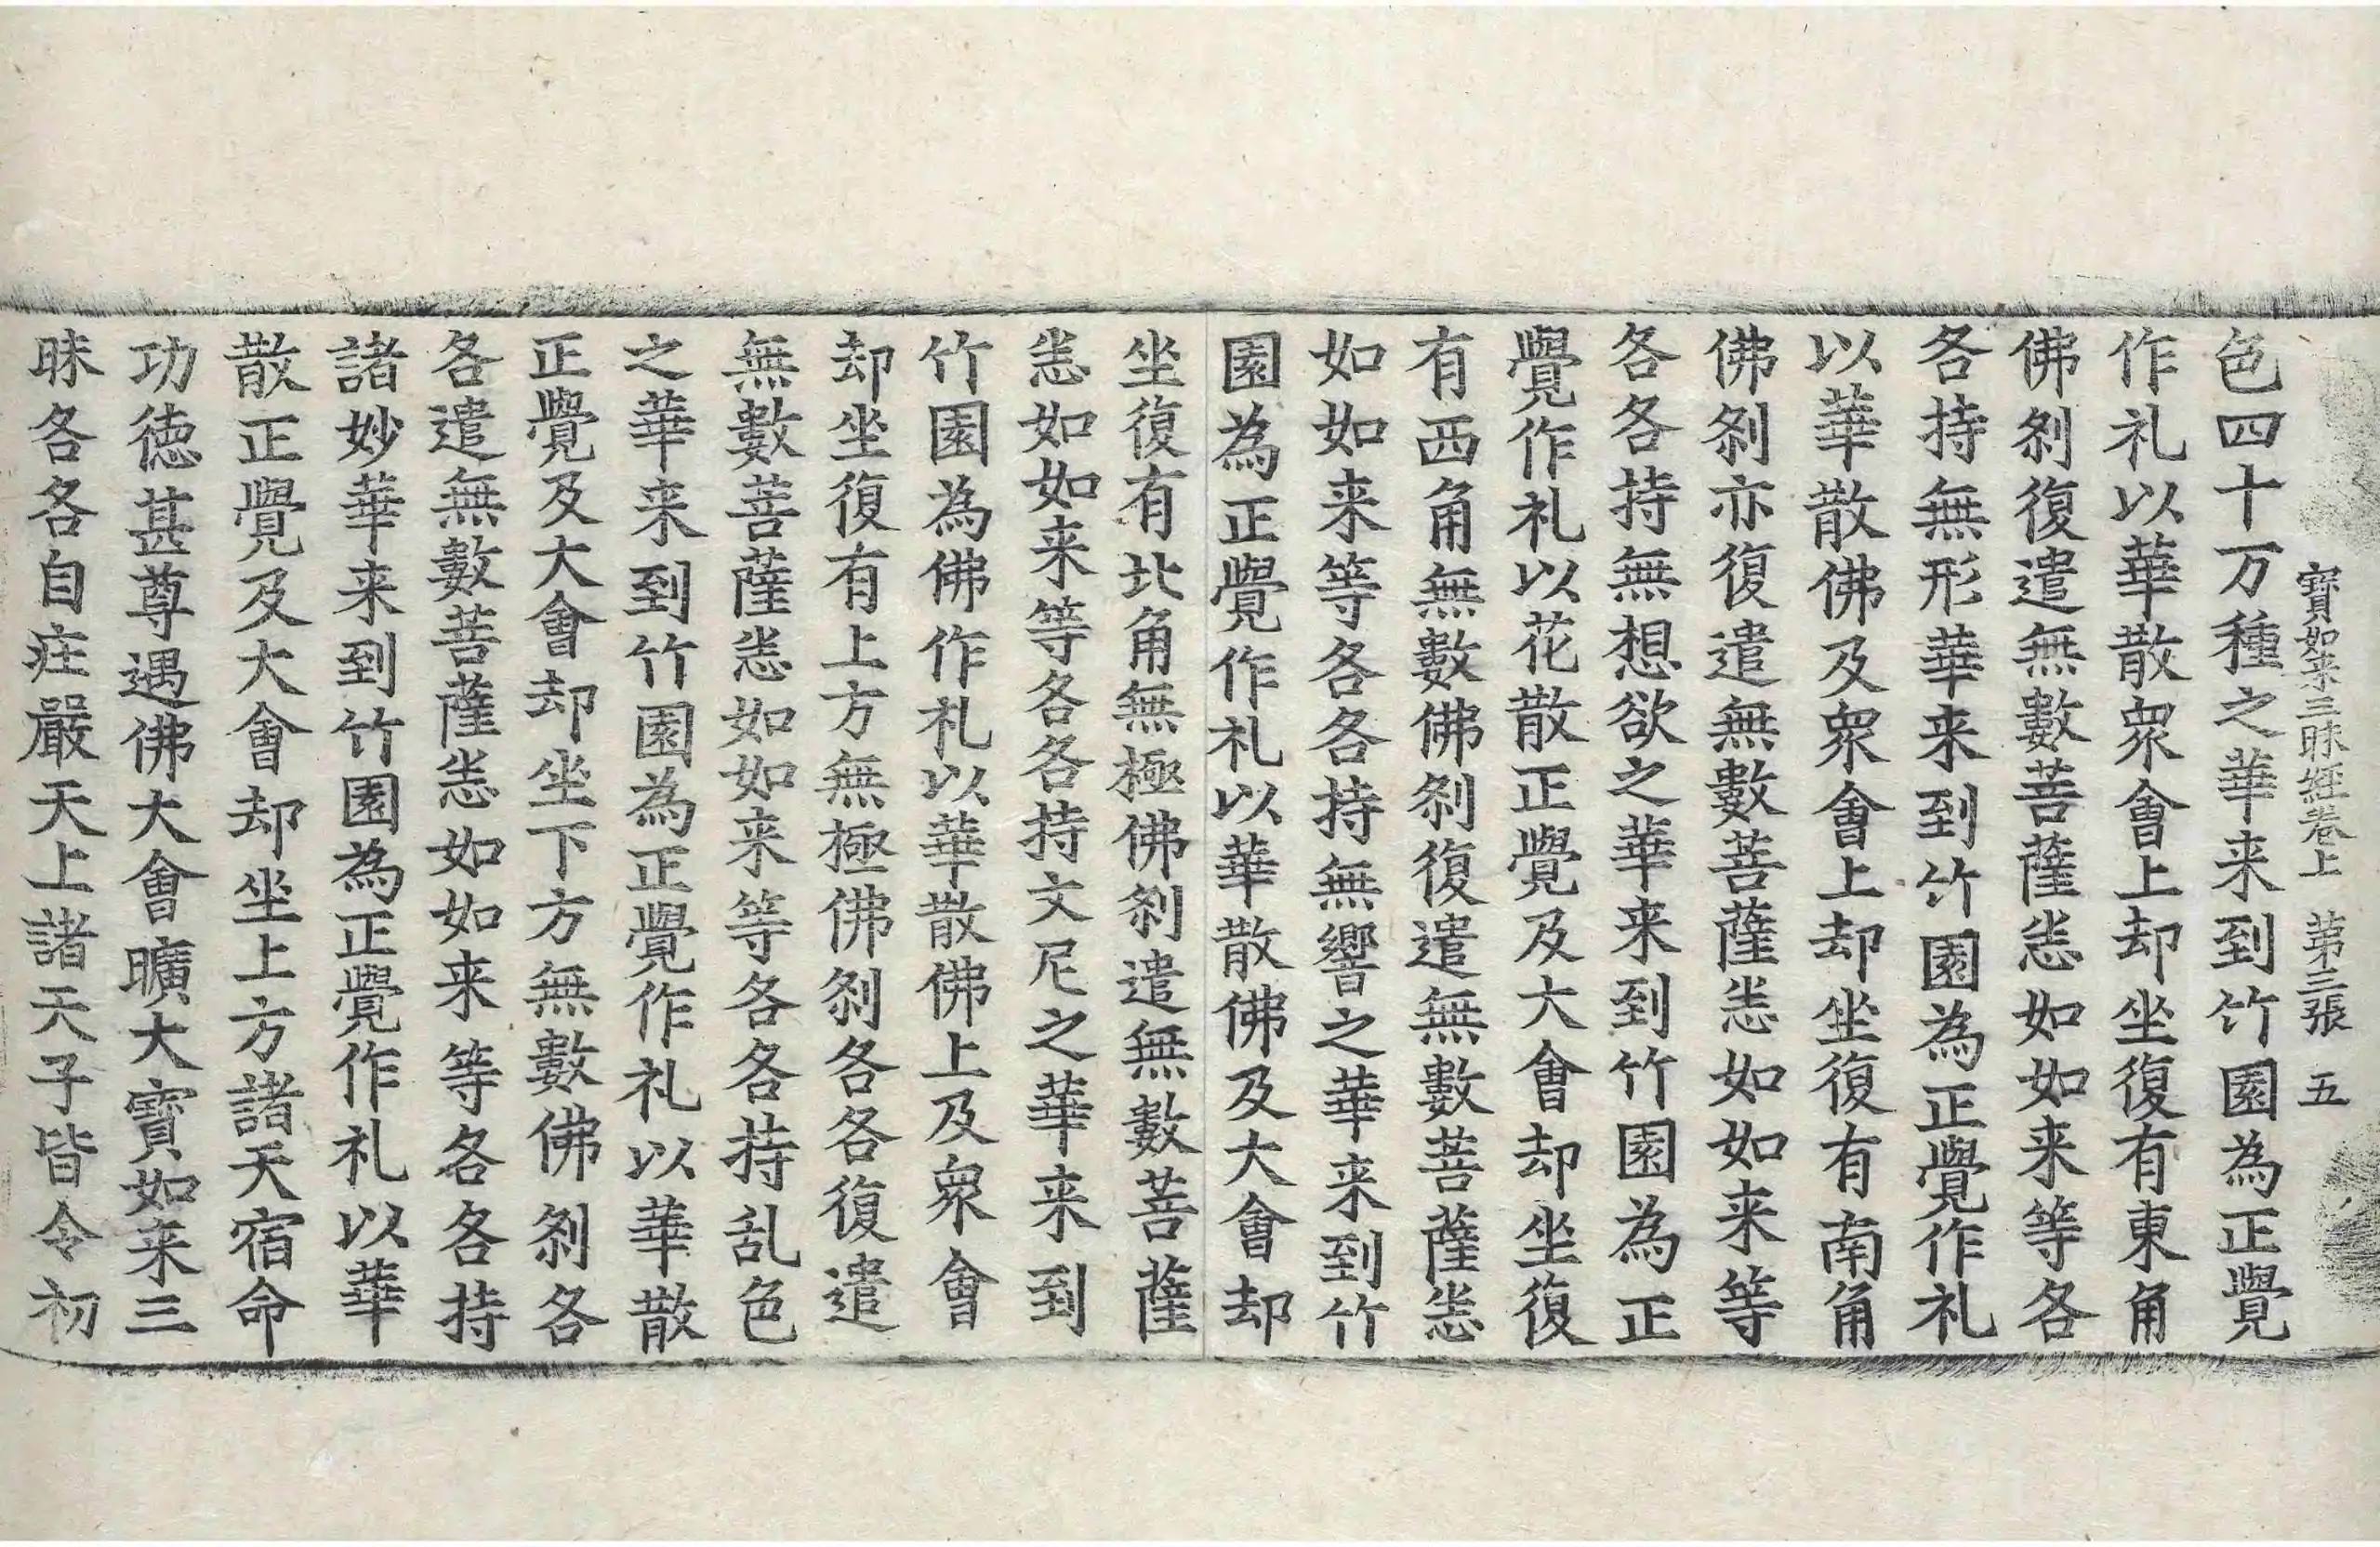 寳如来三昧経卷上　第三張　五
色四十万種之華来到竹園為正覺
作礼以華散衆會上却坐復有東角
佛刹復遣無數菩薩恙如如来等各
各持無形華来到竹園為正覺作礼
以華散佛及衆會上却坐復有南角
佛刹亦復遣無數菩薩恙如如来等
各各持無想欲之華来到竹園為正
覺作礼以花散正覺及大會却坐復
有西角無數佛刹復遣無數菩薩恙
如如来等各各持無響之華来到竹
園為正覺作礼以華散佛及大會却
坐復有北角無極佛刹遣無數菩薩
恙如如来等各各持文尼之華来到
竹園為佛作礼以華散佛上及衆會
却坐復有上方無極佛刹各各復遣
無數菩薩恙如如来等各各持乱色
之華来到竹園為正覺作礼以華散
正覺及大會却坐下方無數佛刹各
各遣無數菩薩恙如如来等各各持
諸妙華来到竹園為正覺作礼以華
散正覺及大會却坐上方諸天宿命
功徳甚尊遇佛大會曠大寳如来三
昧各各自庄嚴天上諸天子皆令初